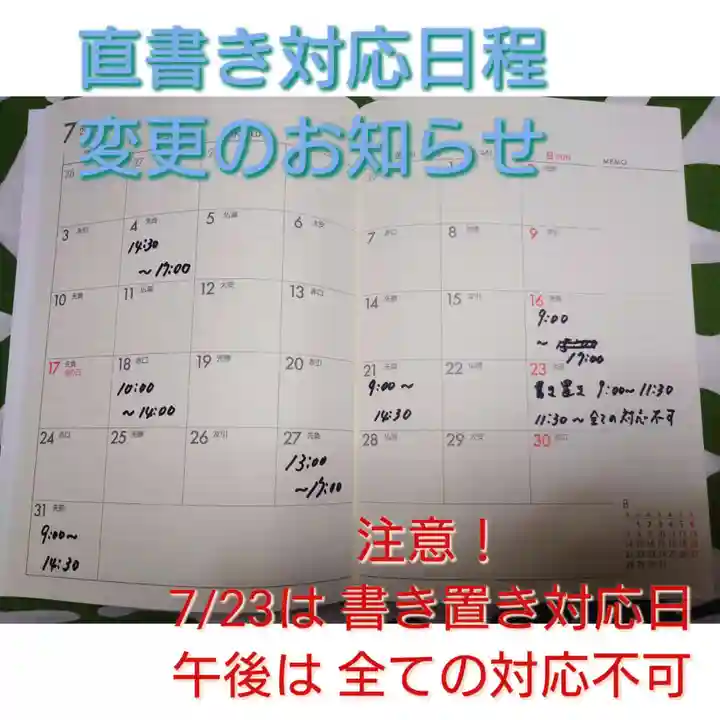 直書き対応日程
変更のお知らせ
7
MEMO
3 友引
4 先負
14:30
～17:00
5 仏滅
6 大安
7 赤口
8
9
10
11 仏滅
12 大安
13 赤口
14 先勝
15 友引
16 先負
9:00
～
17:00
17 先負
海の日
18 赤口
10:00
～14:00
19 先勝
20 友引
21 先負
9:00～
14:30
22 仏滅
23
書き置き 9:00～11:30
11:30～全ての対応不可
24 赤口
25 先勝
26 友引
27 先負
13:00
～17:00
28 仏滅
29 大安
30 赤口
31 先勝
9:00～
14:30
8
注意！
7/23は 書き置き対応日
午後は 全ての対応不可